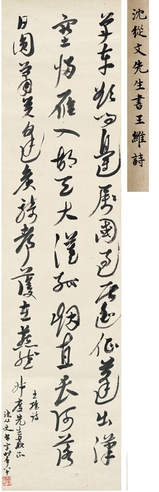 單車欲問邊屬國過居延征蓬出漢
塞歸雁入胡天大漠孤烟直長河落
日圓蕭關逢候騎都護在燕然
王維詩
先生教正
沈從文
沈從文先生書王維詩